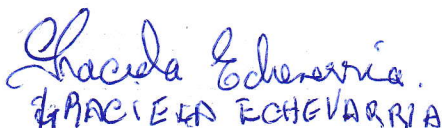 Graciela Echevarria.
GRACIELA ECHEVARRIA